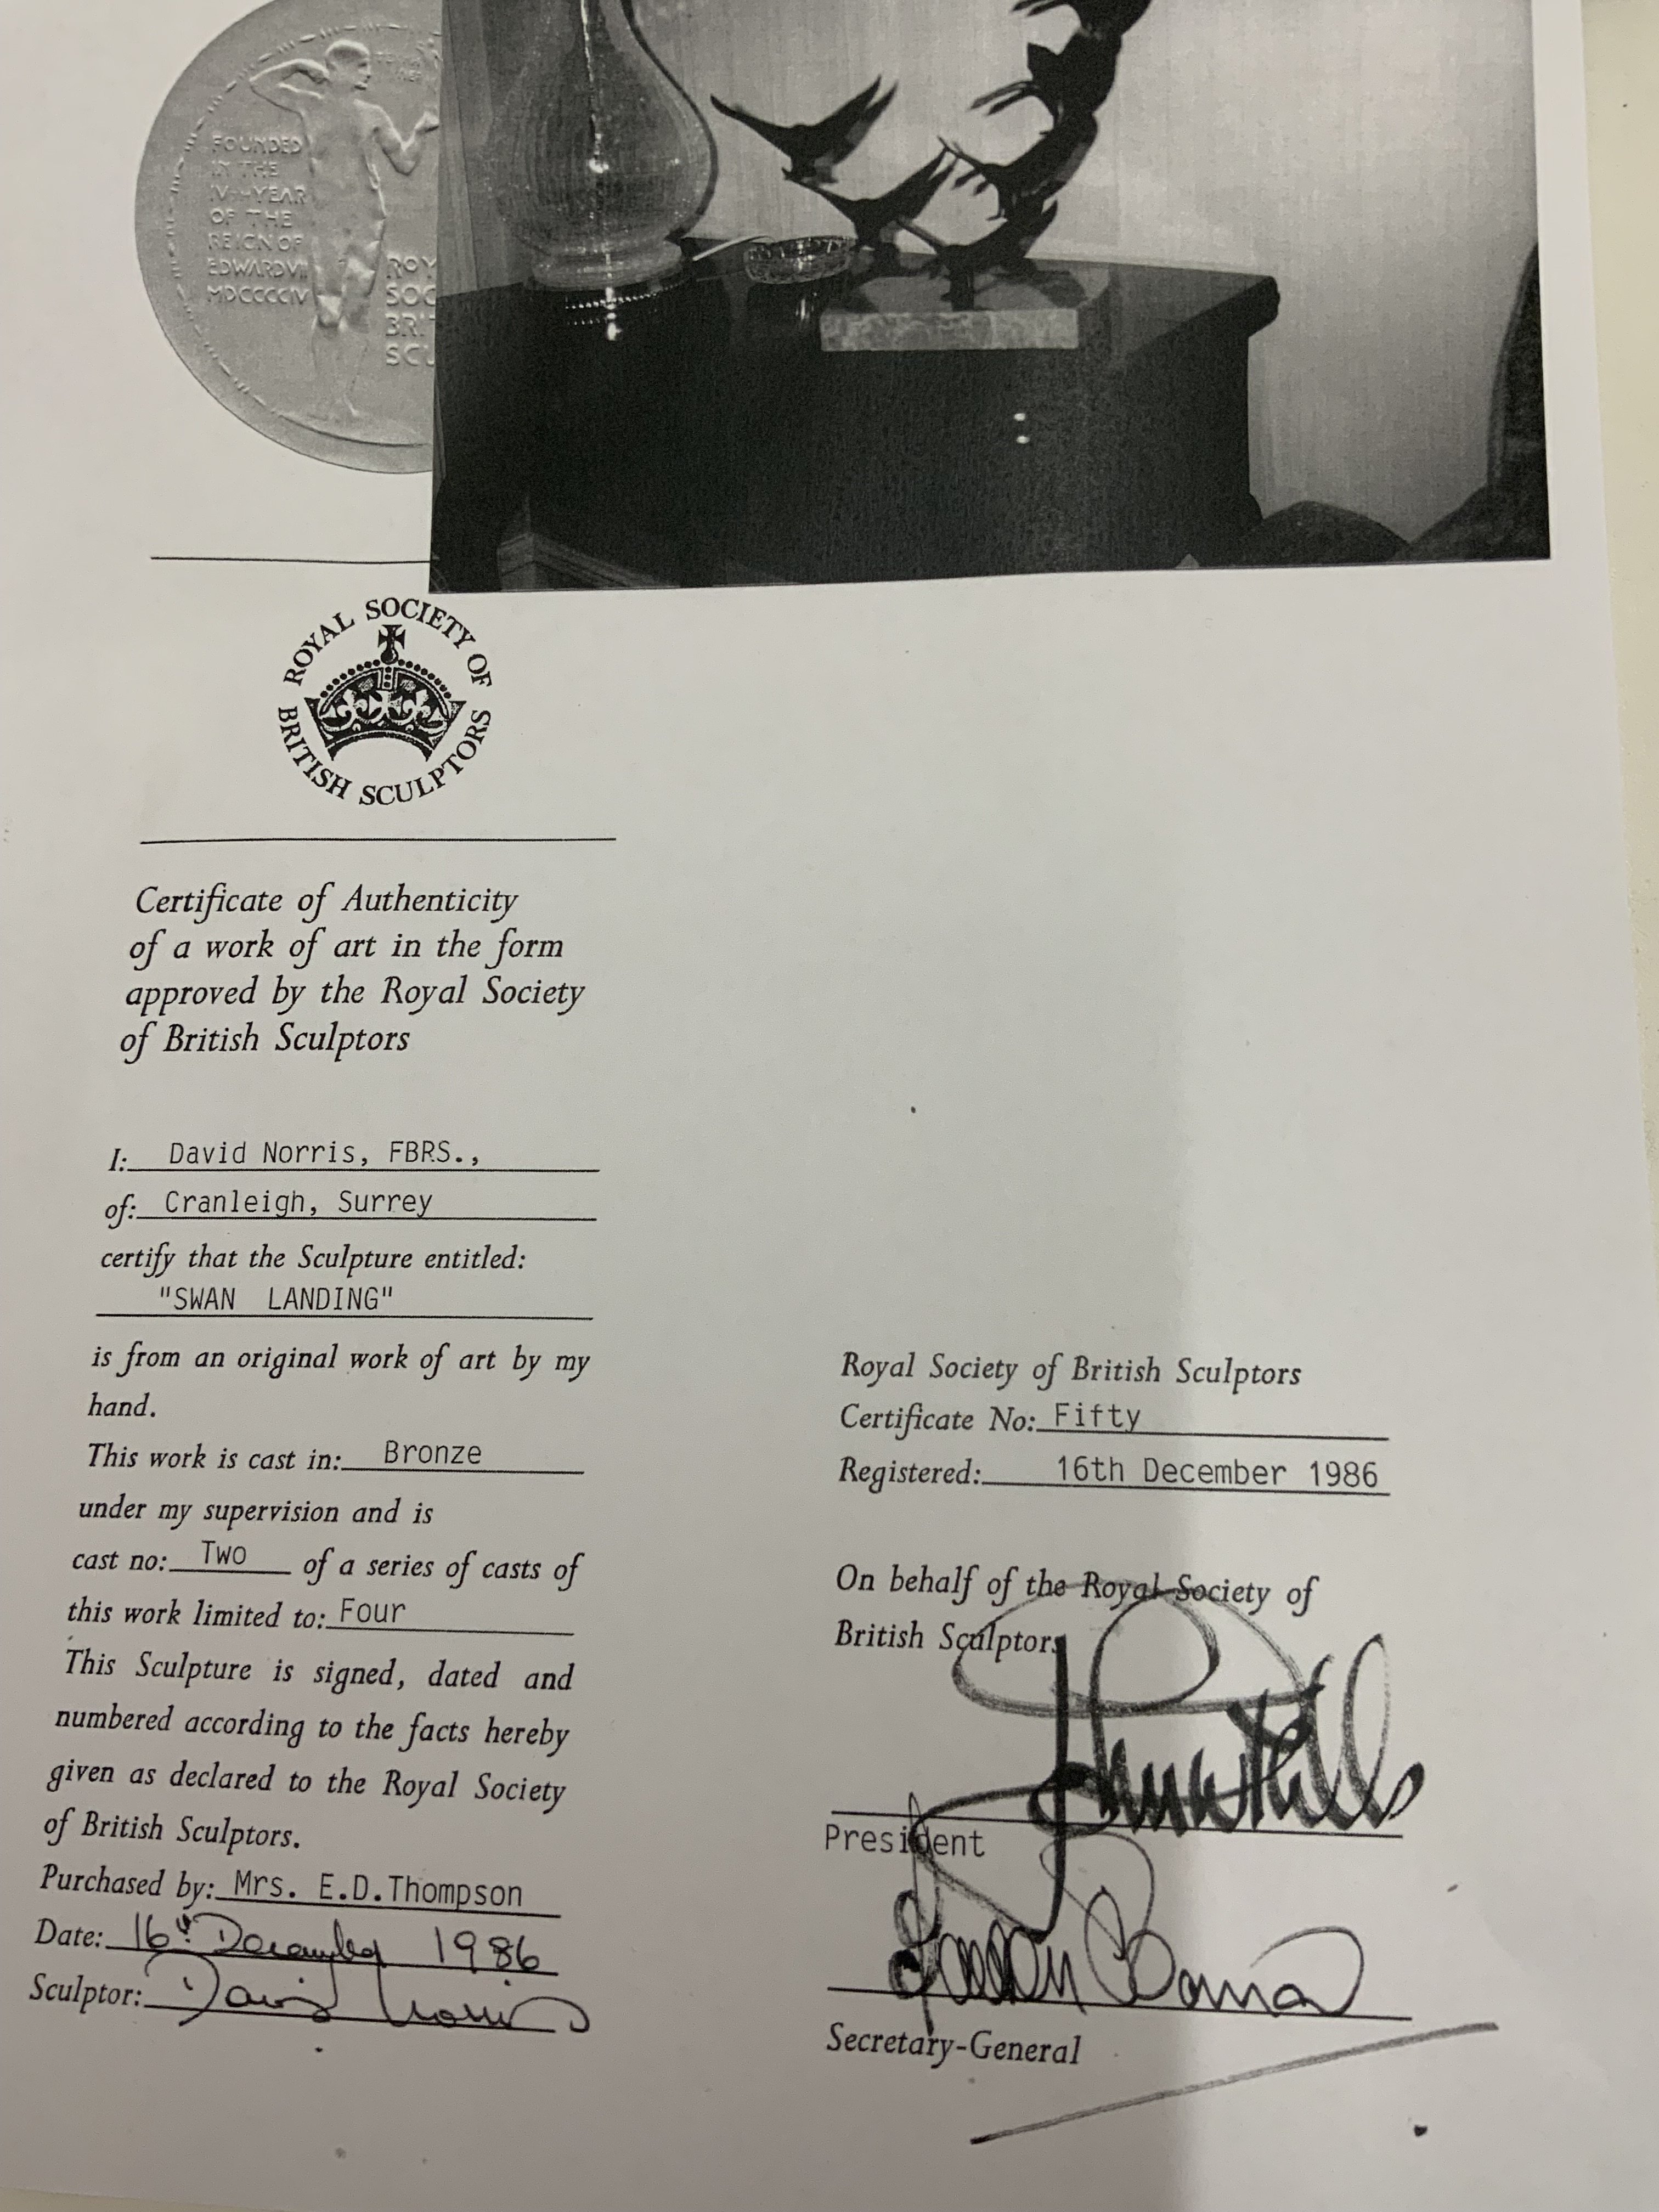 FOUNDED
IN THE
IV—YEAR
OF THE
REIGN OF
EDWARD VII
MDCCCCIV
ROY
SOC
BRIT
SCU
ROYAL SOCIETY OF
BRITISH SCULPTORS
Certificate of Authenticity
of a work of art in the form
approved by the Royal Society
of British Sculptors
I: David Norris, FBRS.,
of: Cranleigh, Surrey
certify that the Sculpture entitled:
"SWAN LANDING"
is from an original work of art by my
hand.
This work is cast in: Bronze
under my supervision and is
cast no: Two of a series of casts of
this work limited to: Four
This Sculpture is signed, dated and
numbered according to the facts hereby
given as declared to the Royal Society
of British Sculptors.
Purchased by: Mrs. E.D.Thompson
Date: 16th December 1986
Sculptor: David Norris
Royal Society of British Sculptors
Certificate No: Fifty
Registered: 16th December 1986
On behalf of the Royal Society of
British Sculptors
President
Secretary-General